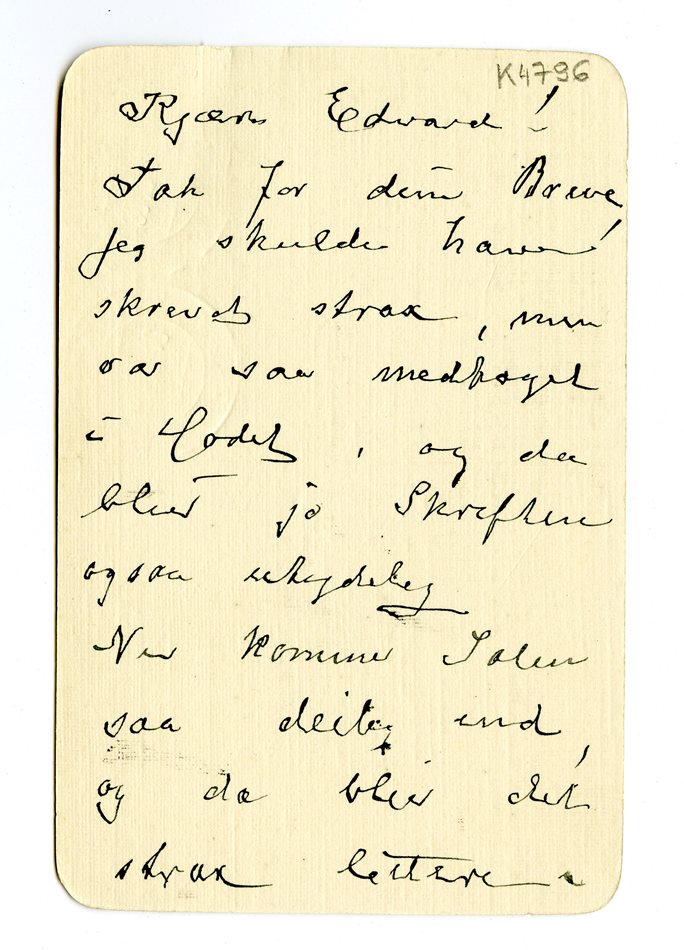 K4796
Kjære Edvard!
Tak for dine Breve,
jeg skulde have
skrevet strax, men
var saa medtaget
i Hodet, og da
bliver jo Skriften
ogsaa utydelig
Nu kommer Solen
saa deilig ind,
og da blir det
strax lettere i